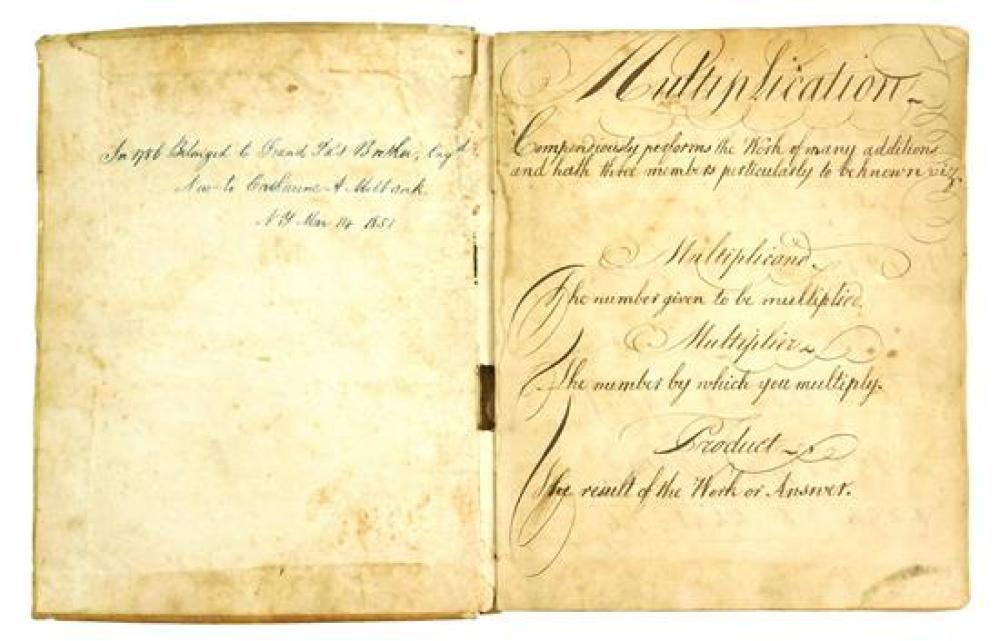 In 1786 Belonged to Brother, Eng^d
Now to Catharine A Milbank
N Y Mar 14 1851
Multiplication
Compendiously performs the Work of many additions
and hath three members particularly to be known viz.
Multiplicand
The number given to be multiplied.
Multiplier
The number by which you multiply.
Product
The result of the Work or Answer.